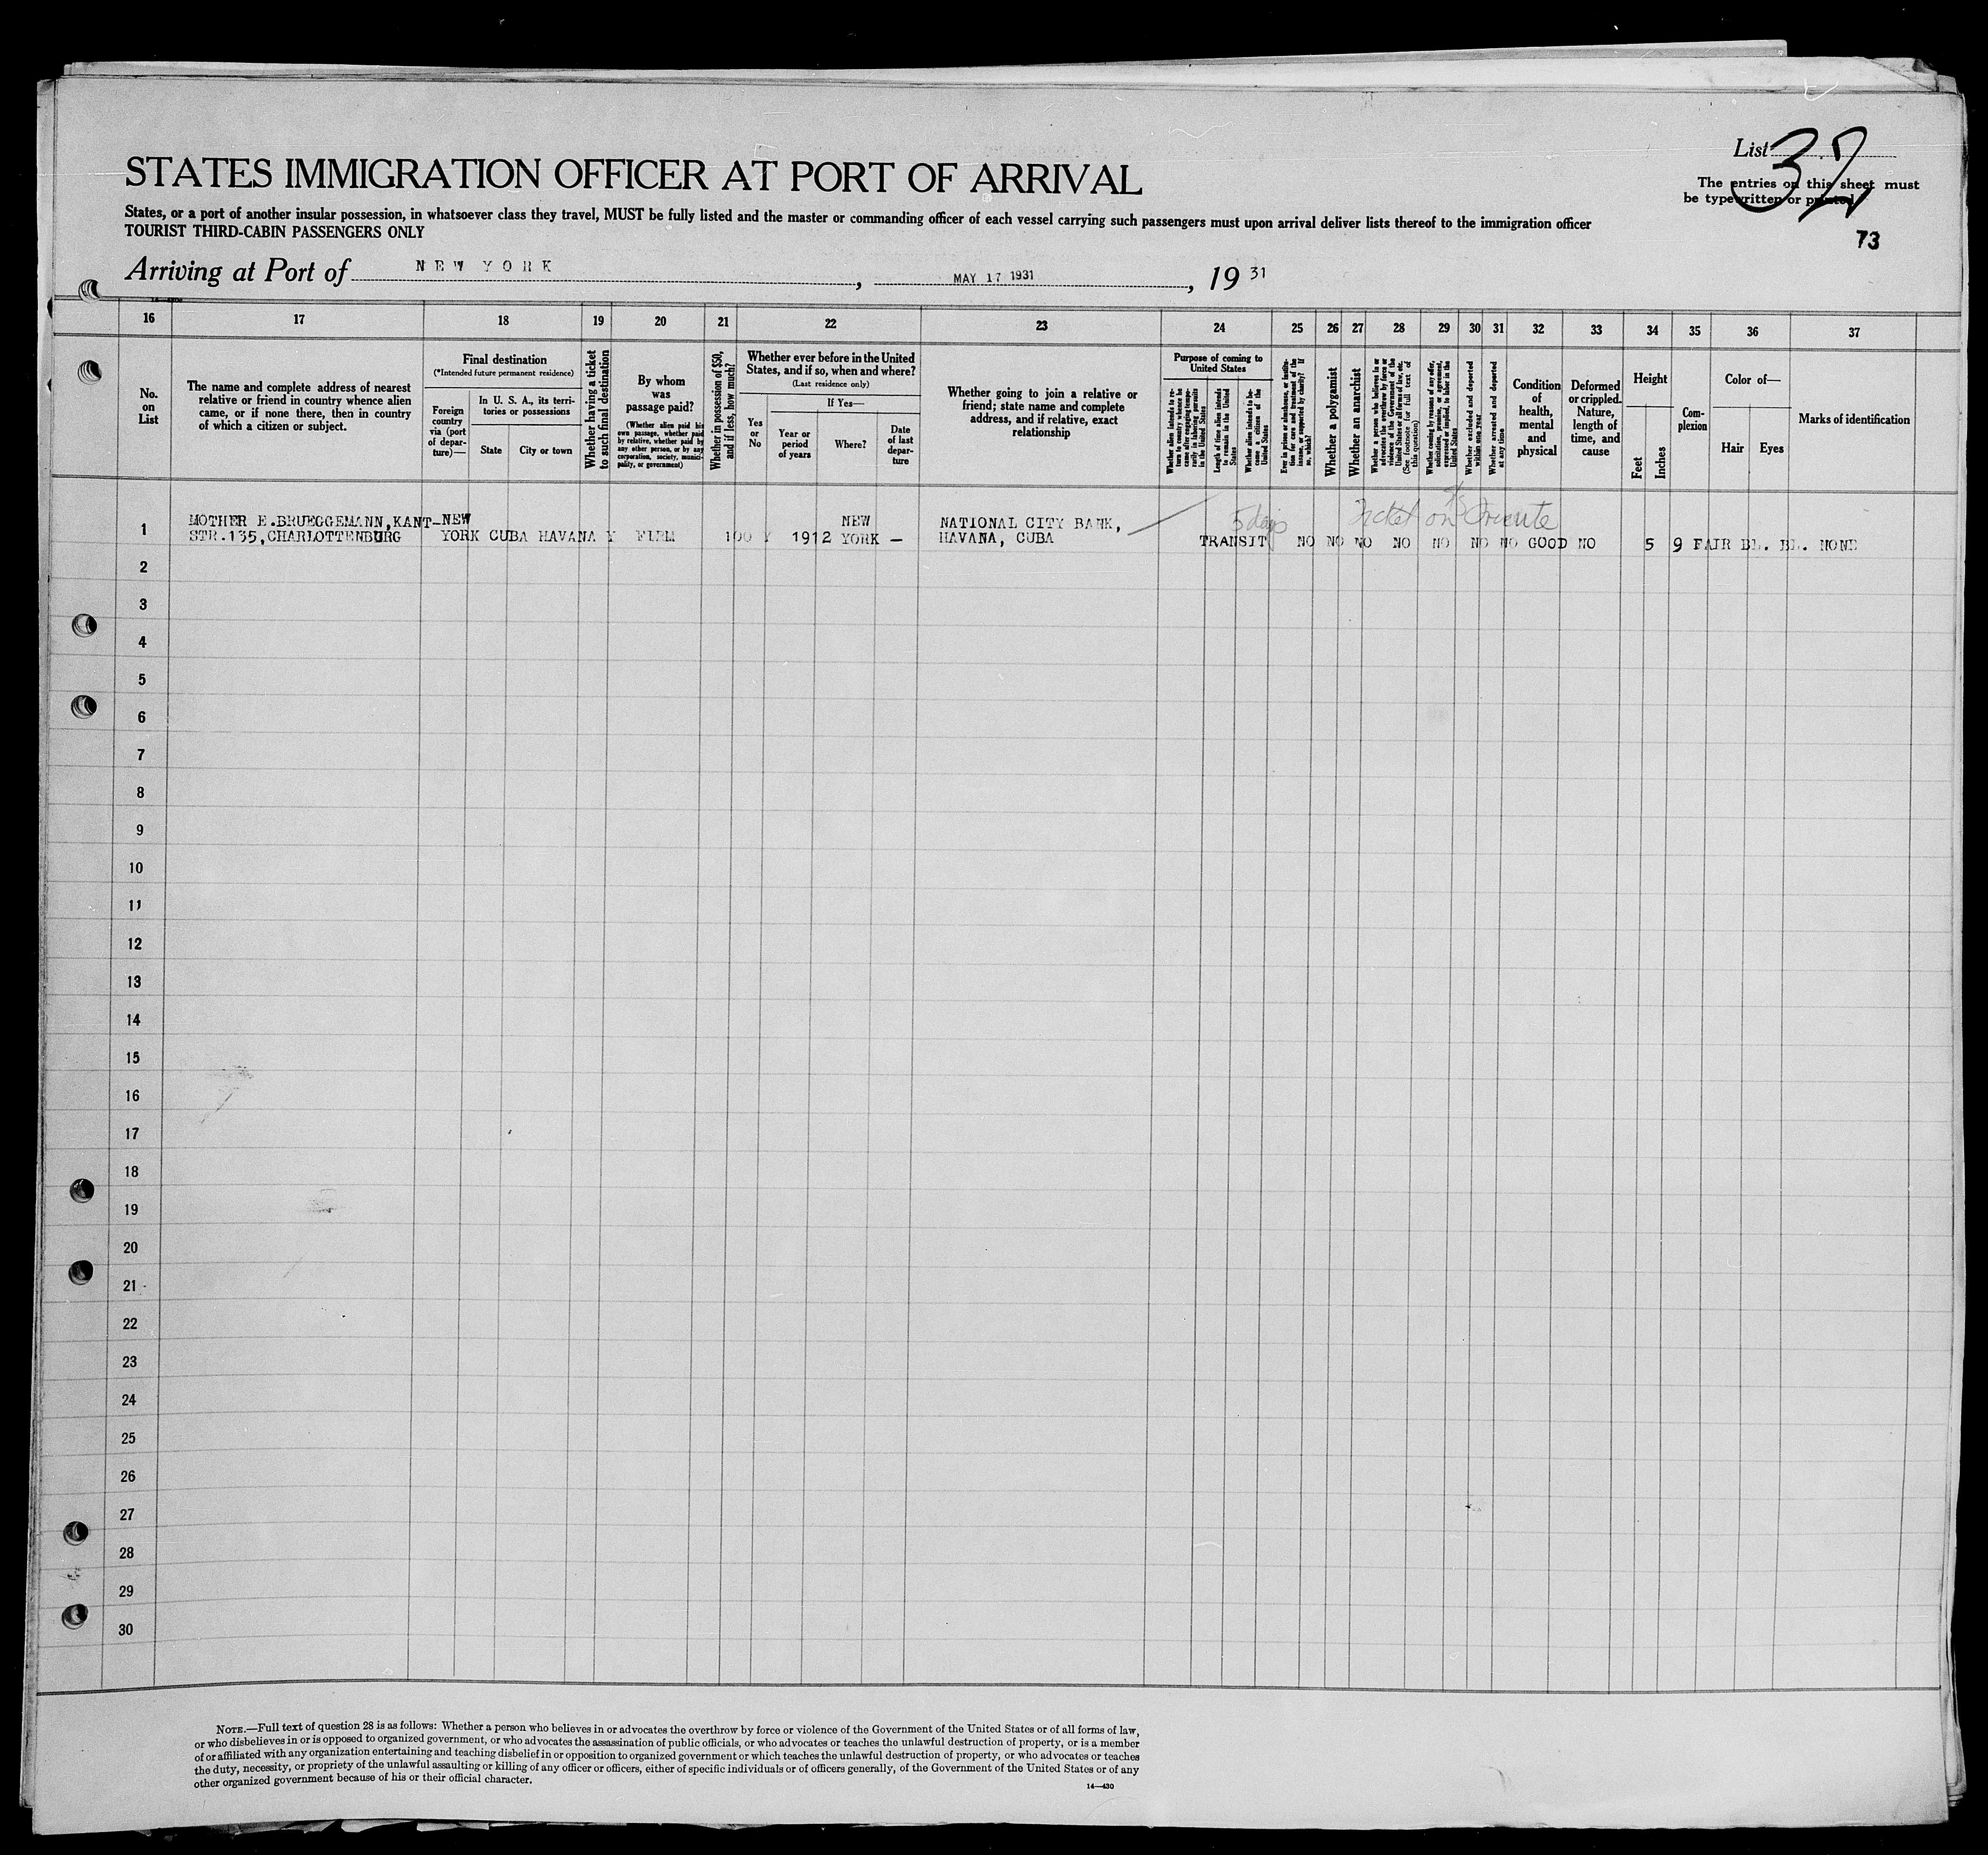 List 32
STATES IMMIGRATION OFFICER AT PORT OF ARRIVAL
The entries on this sheet must
be typewritten or printed
States, or a port of another insular possession, in whatsoever class they travel, MUST be fully listed and the master or commanding officer of each vessel carrying such passengers must upon arrival deliver lists thereof to the immigration officer
TOURIST THIRD-CABIN PASSENGERS ONLY
73
Arriving at Port of NEW YORK, MAY 17 1931, 19 31
16 17 18 19 20 21 22 23 24 25 26 27 28 29 30 31 32 33 34 35 36 37
No.
on
List
The name and complete address of nearest
relative or friend in country whence alien
came, or if none there, then in country
of which a citizen or subject.
Final destination
(*Intended future permanent residence)
Foreign
country
via (port
of depar-
ture)—
In U. S. A., its terri-
tories or possessions
State City or town
Whether having a ticket
to such final destination
By whom
was
passage paid?
(Whether alien paid his
own passage, whether paid
by relative, whether paid by
any other person, or by any
corporation, society, munici-
pality, or government)
Whether in possession of $50,
and if less, how much?
Whether ever before in the United
States, and if so, when and where?
(Last residence only)
Yes
or
No
If Yes—
Year or
period
of years
Where?
Date
of last
depar-
ture
Whether going to join a relative or
friend; state name and complete
address, and if relative, exact
relationship
Purpose of coming to
United States
Whether alien intends to re-
turn to country whence he
came after engaging tempo-
rarily in laboring pursuits
in the United States
Length of time alien intends
to remain in the United
States
Whether alien intends to be-
come a citizen of the
United States
Ever in prison or almshouse, or institu-
tion for care and treatment of the
insane, or supported by charity? If
so, which?
Whether a polygamist
Whether an anarchist
Whether a person who believes in or
advocates the overthrow by force or
violence of the Government of the
United States or all forms of law, etc.
(See footnote for full text of
this question)
Whether coming by reason of any offer,
solicitation, promise, or agreement,
expressed or implied, to labor in the
United States
Whether excluded and deported
within one year
Whether arrested and deported
at any time
Condition
of
health,
mental
and
physical
Deformed
or crippled.
Nature,
length of
time, and
cause
Height
Feet
Inches
Com-
plexion
Color of—
Hair Eyes
Marks of identification
5 days Ticket on Oriente
MOTHER E.BRUEGGEMANN,KANT- NEW NEW NATIONAL CITY BANK,
1 STR.135,CHARLOTTENBURG YORK CUBA HAVANA Y FIRM 100 Y 1912 YORK — HAVANA, CUBA TRANSIT NO NO NO NO NO NO NO GOOD NO 5 9 FAIR BL. BL. NONE
2
3
4
5
6
7
8
9
10
11
12
13
14
15
16
17
18
19
20
21
22
23
24
25
26
27
28
29
30
NOTE.—Full text of question 28 is as follows: Whether a person who believes in or advocates the overthrow by force or violence of the Government of the United States or of all forms of law,
or who disbelieves in or is opposed to organized government, or who advocates the assassination of public officials, or who advocates or teaches the unlawful destruction of property, or is a member
of or affiliated with any organization entertaining and teaching disbelief in or opposition to organized government or which teaches the unlawful destruction of property, or who advocates or teaches
the duty, necessity, or propriety of the unlawful assaulting or killing of any officer or officers, either of specific individuals or of officers generally, of the Government of the United States or of any
other organized government because of his or their official character.
14—430